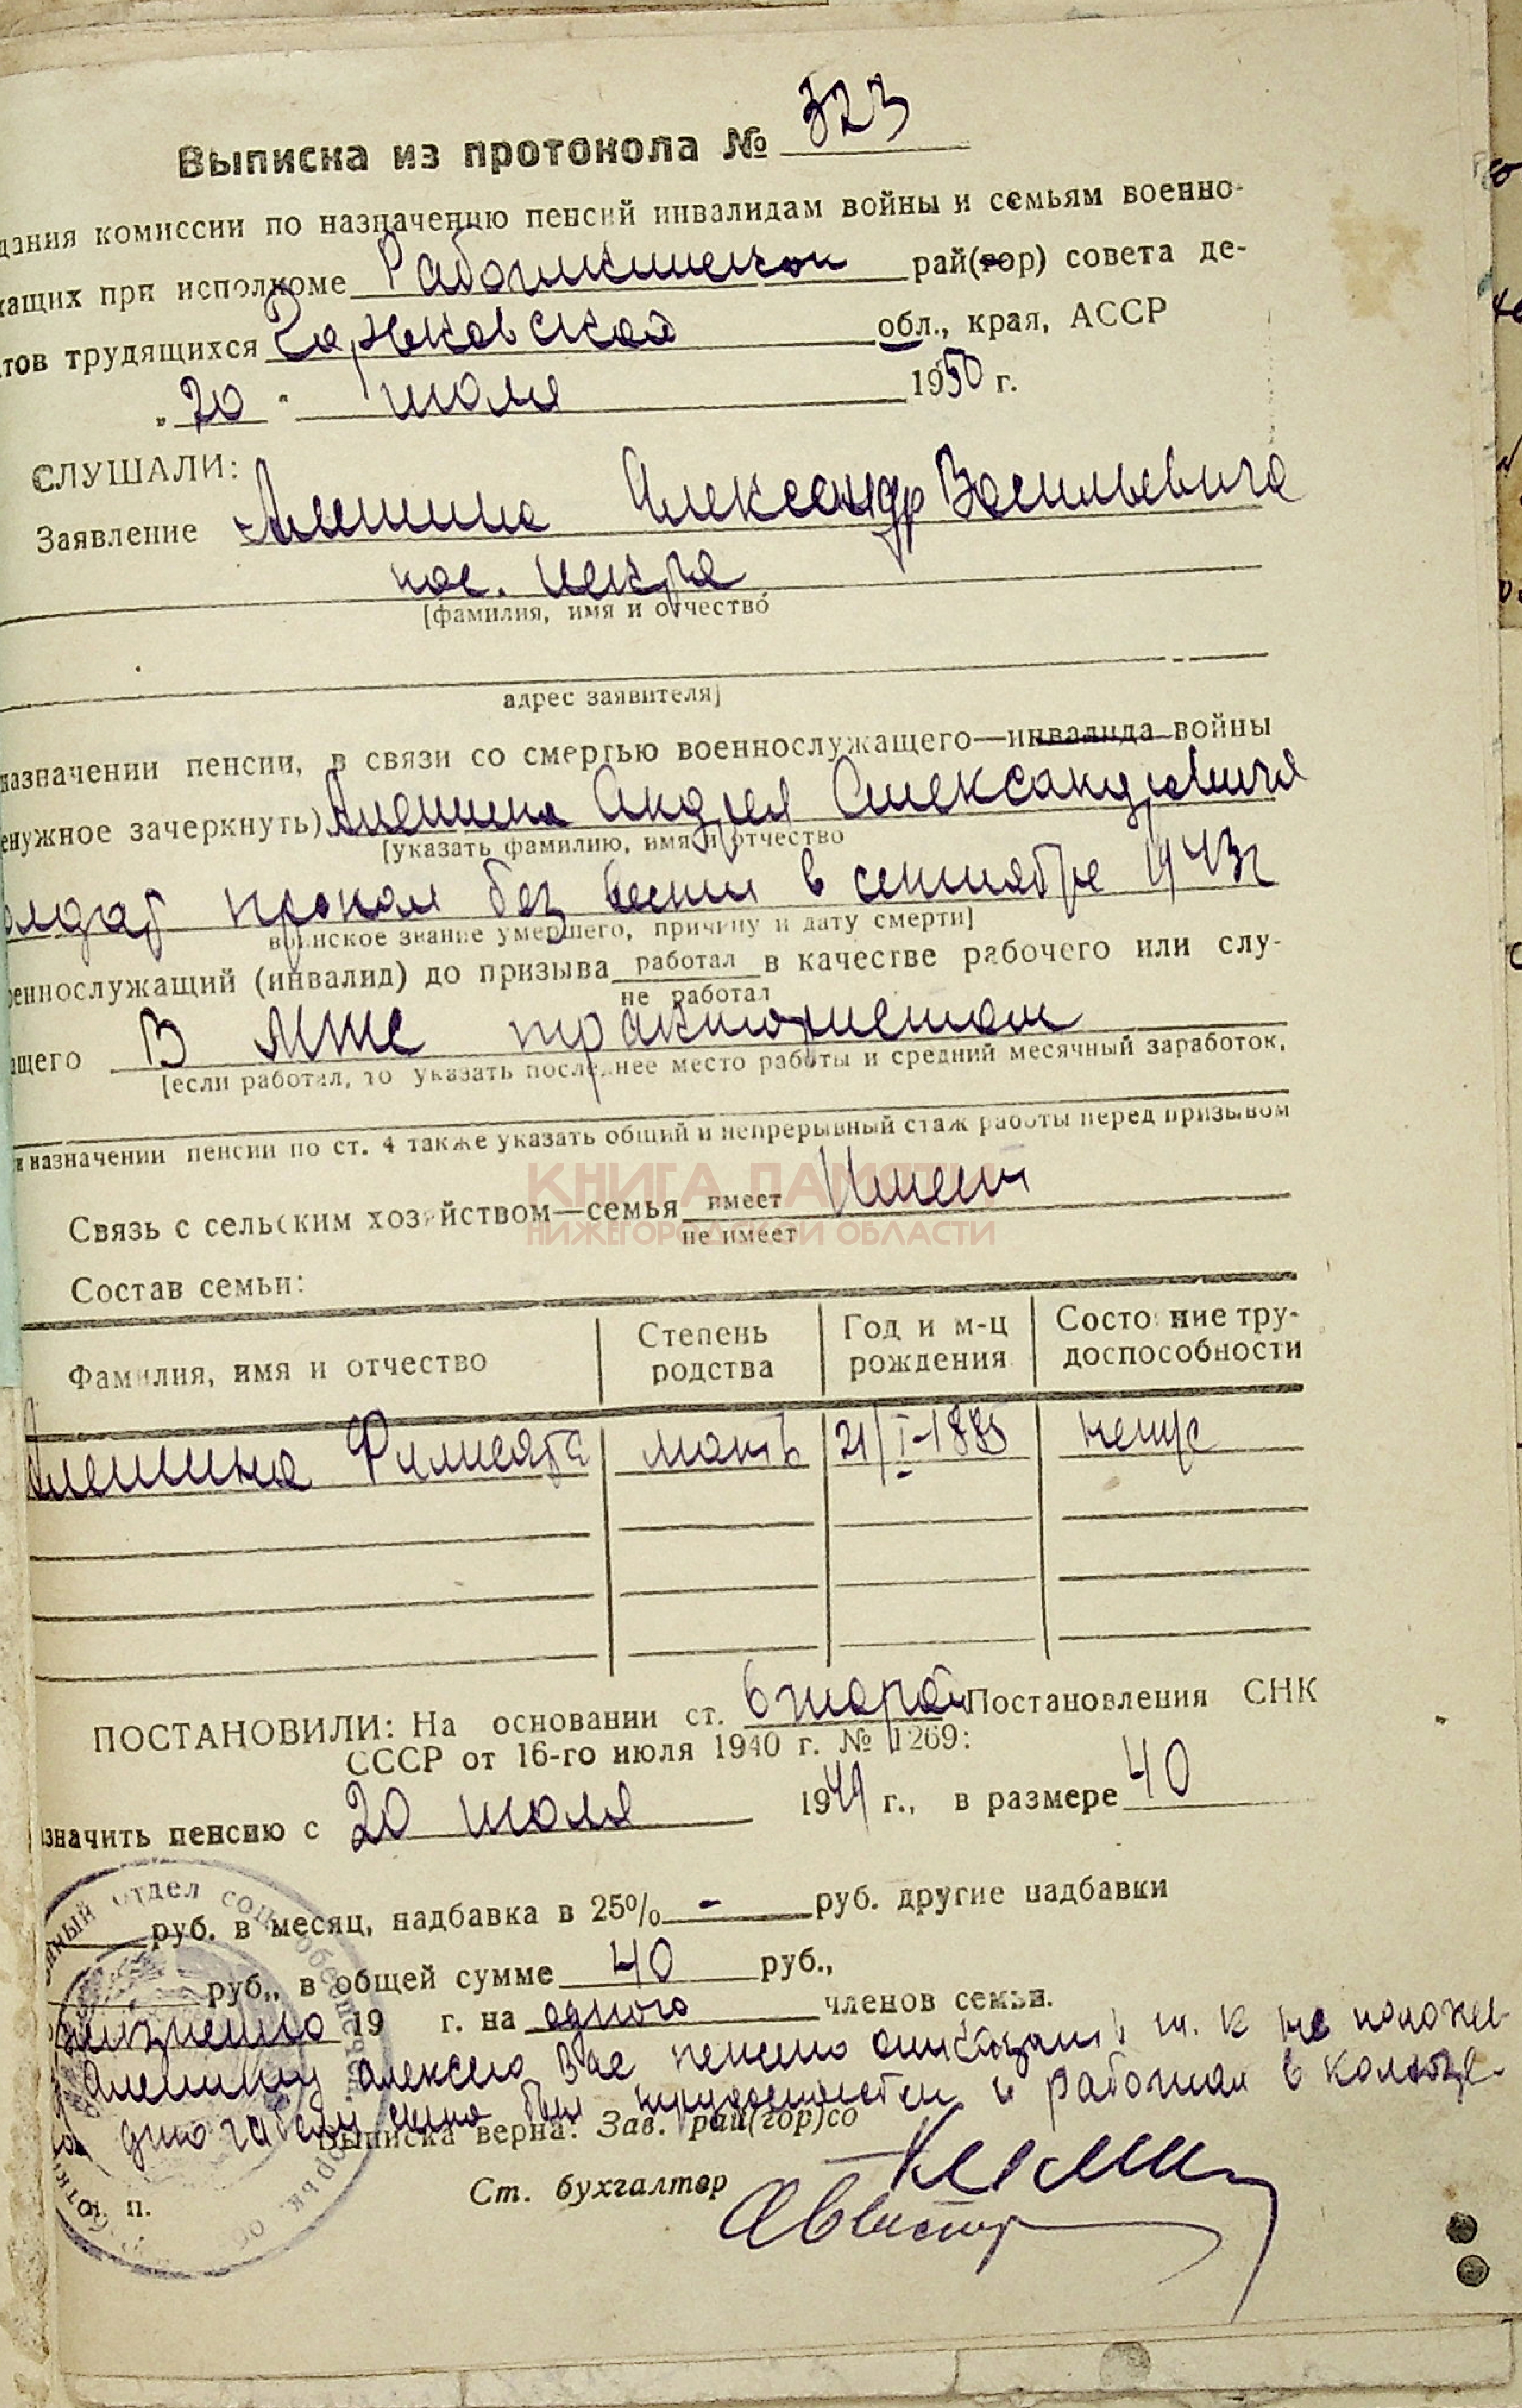 Выписка из протокола № 323
дания комиссии по назначению пенсий инвалидам войны и семьям военно-
жащих при исполкоме Работкинском рай(гор) совета де-
тов трудящихся Горьковской обл., края, АССР
„20" июля 1950 г.
СЛУШАЛИ:
Заявление Алешина Александр Васильевича
пос. Искра
[фамилия, имя и отчество
адрес заявителя]
назначении пенсии, в связи со смертью военнослужащего—инвалида войны
енужное зачеркнуть) Алешина Андрея Александровича
[указать фамилию, имя и отчество
олдат пропал без вести в сентябре 1943г
воинское звание умершего, причину и дату смерти]
оеннослужащий (инвалид) до призыва работал в качестве рабочего или слу-
не работал
ащего В МТС трактористом
[если работал, то указать последнее место работы и средний месячный заработок,
и назначении пенсии по ст. 4 также указать общий и непрерывный стаж работы перед призывом
КНИГА ПАМЯТИ
НИЖЕГОРОДСКОЙ ОБЛАСТИ
Связь с сельским хозяйством—семья имеет Имеет
не имеет
Состав семьи:
Фамилия, имя и отчество Степень родства Год и м-ц рождения Состояние тру-доспособности
Алешина мать 21/I-1885 нетр
ПОСТАНОВИЛИ: На основании ст. второй Постановления СНК
СССР от 16-го июля 1940 г. № 1269:
азначить пенсию с 20 июля 1949 г., в размере 40
руб. в месяц, надбавка в 25% - руб. другие надбавки
руб., в общей сумме 40 руб.,
пожизненно 19 г. на одного членов семьи.
Алешину пенсию отказать т. к на
был и работал в
Выписка верна: Зав. рай(гор)со
Ст. бухгалтер
п.